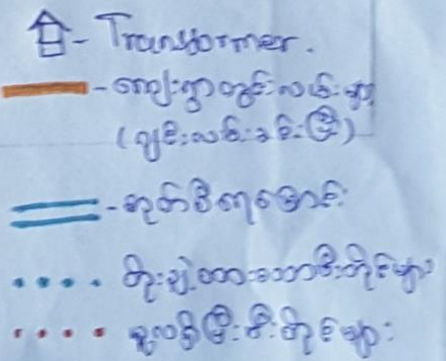 Transformer.
- ကျေးရွာတွင်းလမ်းများ
(ဂျင်းလမ်းခင်းပြီး)
- ဆုတ်စီရေမြောင်း
တိုးချဲ့ထားသောမီးတိုင်များ
ရှိပြီးမီးတိုင်များ